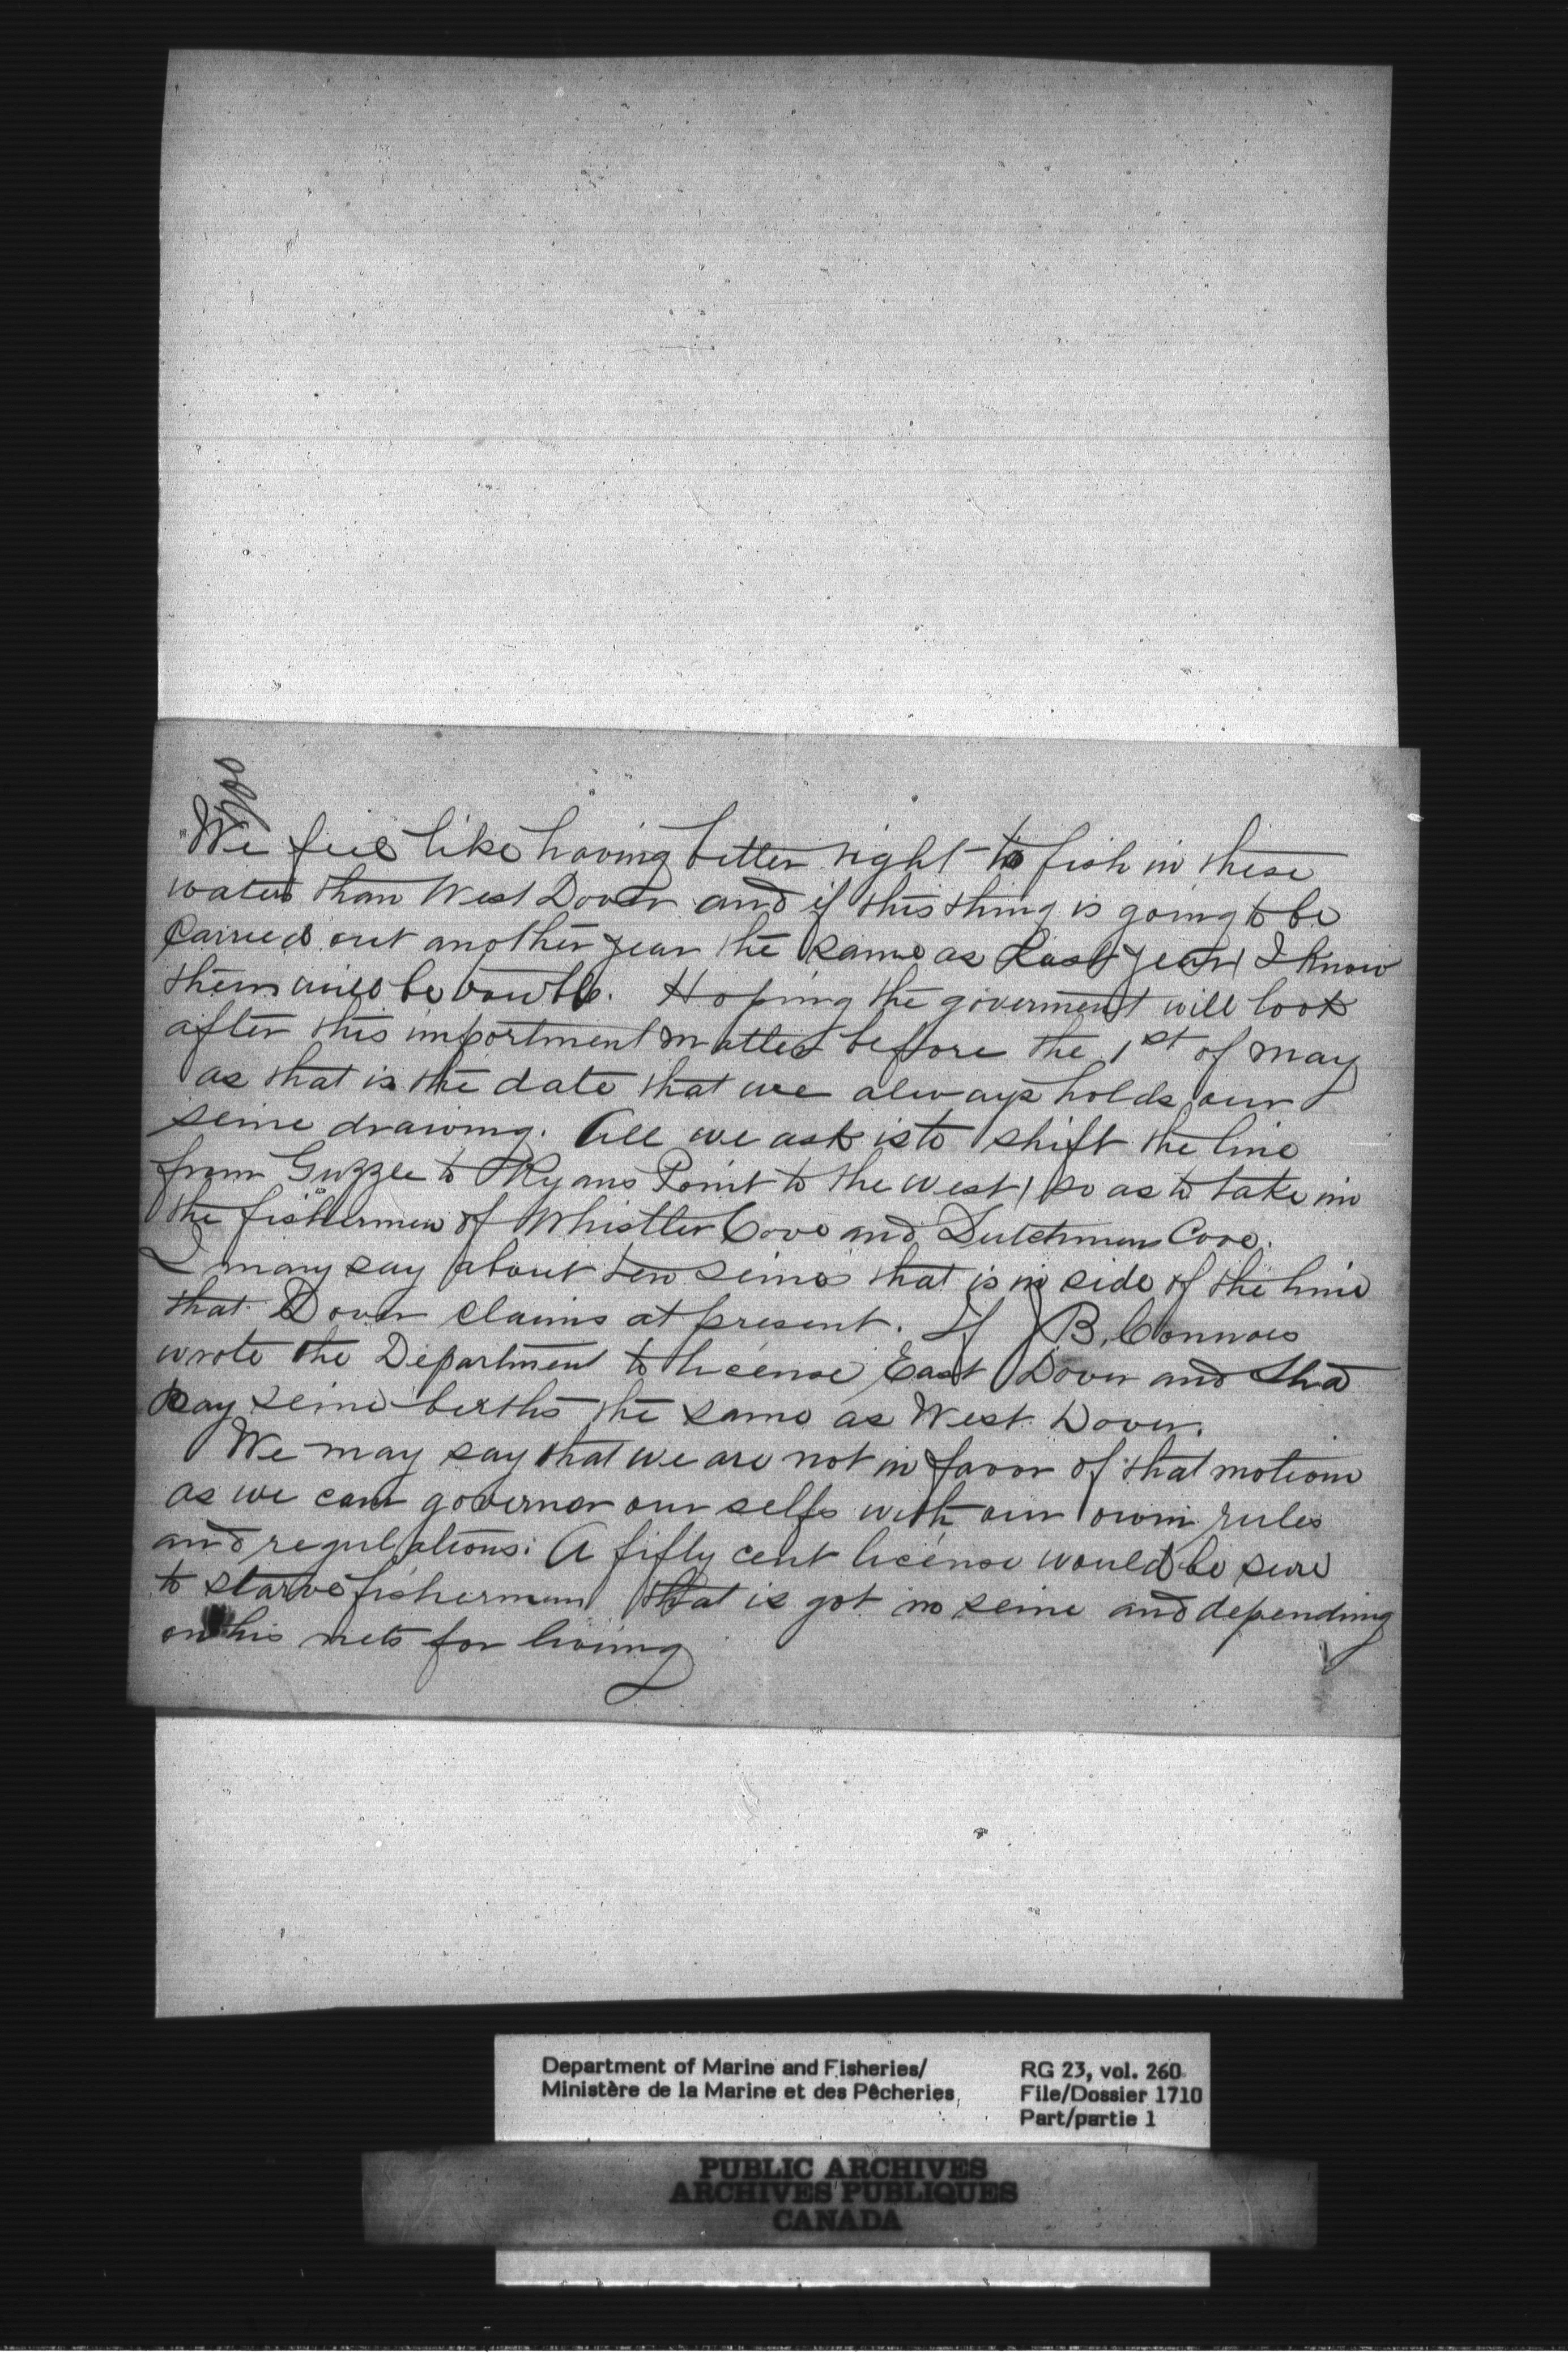 We feel like having better right to fish in these
waters than West Dover and if this thing is going to be
Carried out another year the same as Last year I know
them will be trouble. Hoping the goverment will look
after this importment matter before the 1st of may
as that is the date that we always holds our
seine drawing. All we ask is to shift the line
from Guzzle to Ryans Point to the west, so as to take in
the fishermen of Whistler Cove and Dutchman Cove.
I many say about ten seines that is in side of the line
that Dover claims at present. If J B. Connors
wrote the Department to license East Dover and
pay seine berths the same as West Dover.
We may say that we are not in favor of that motion
as we can governor our selfs with our own rules
and regulations: A fifty cent license would be sure
to starve fishermen that is got no seine and depending
on his nets for living
Department of Marine and Fisheries/
Ministère de la Marine et des Pêcheries
RG 23, vol. 260
File/Dossier 1710
Part/partie 1
PUBLIC ARCHIVES
ARCHIVES PUBLIQUES
CANADA